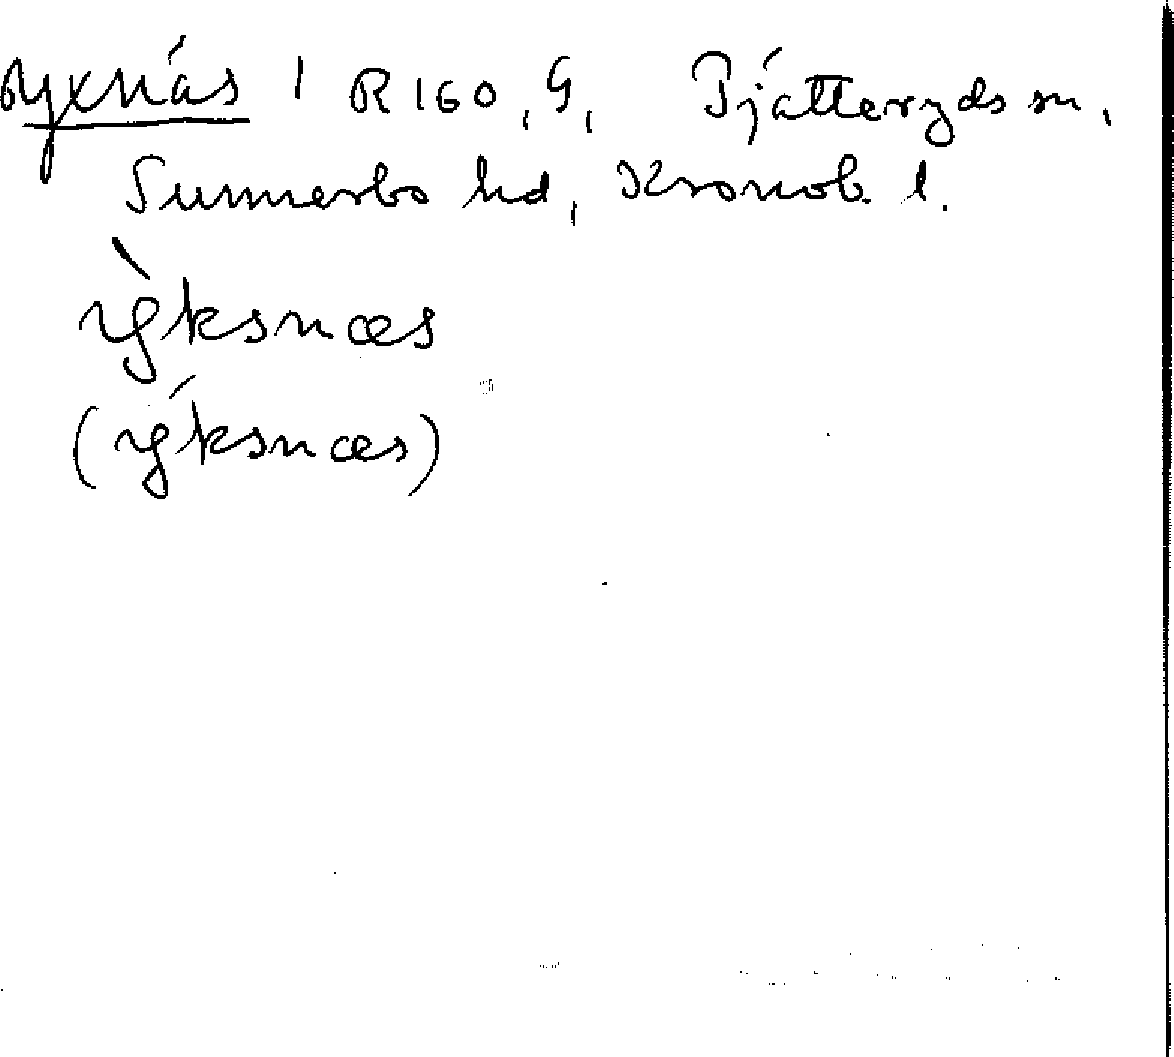 Yxnás 1 R 160, G, Pjätteryds sn,
Sunnerbo hd, Kronob. l.
ỳksnæs
(ýksnæs)